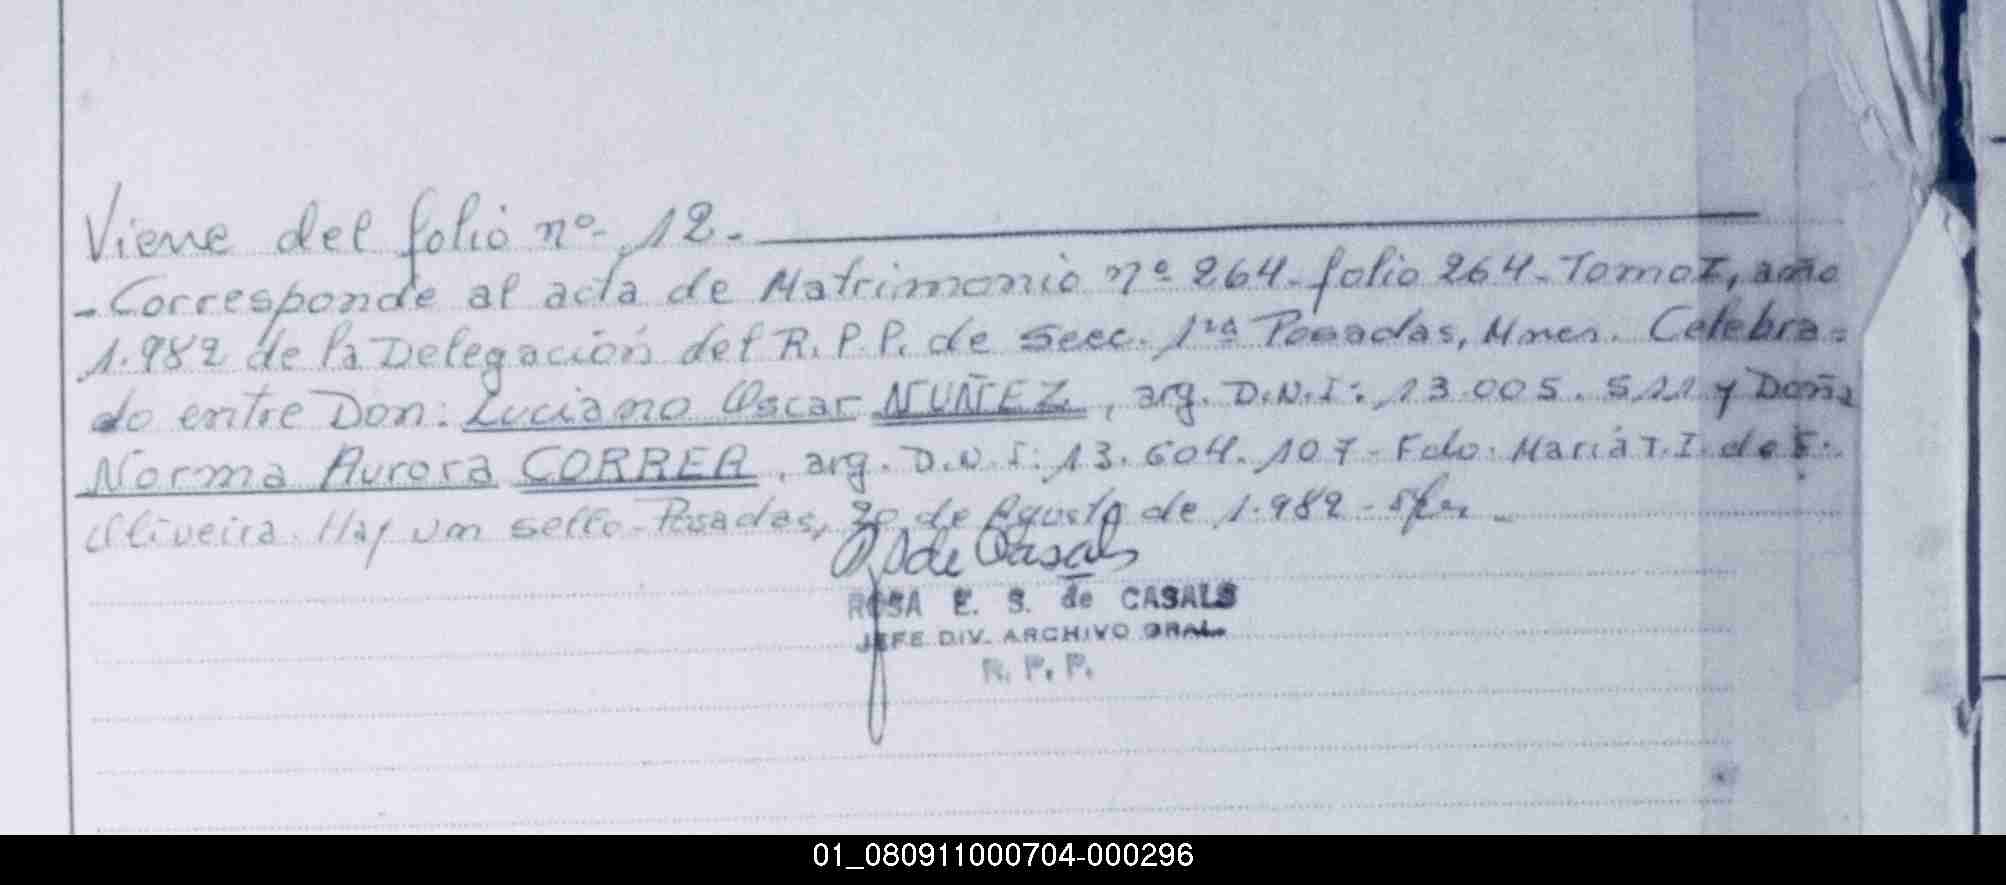 Viene del folio nº 12.
- Corresponde al acta de Matrimonio nº 264 - folio 264 - Tomo I, año
1.982 de la Delegación del R.P.P. de Secc. 1ra Posadas, Mnes. Celebra=
do entre Don: Luciano Oscar NUÑEZ, arg. D.N.I: 13.005.511 y Doña
Norma Aurora CORREA, arg. D.N.I: 13.604.107 - Fdo. Maria T. I. de
Oliveira. Hay un sello - Posadas, 30 de Agosto de 1.982 -
de Casals
ROSA E. S. de CASALS
JEFE DIV. ARCHIVO GRAL.
R. P. P.
01_080911000704-000296